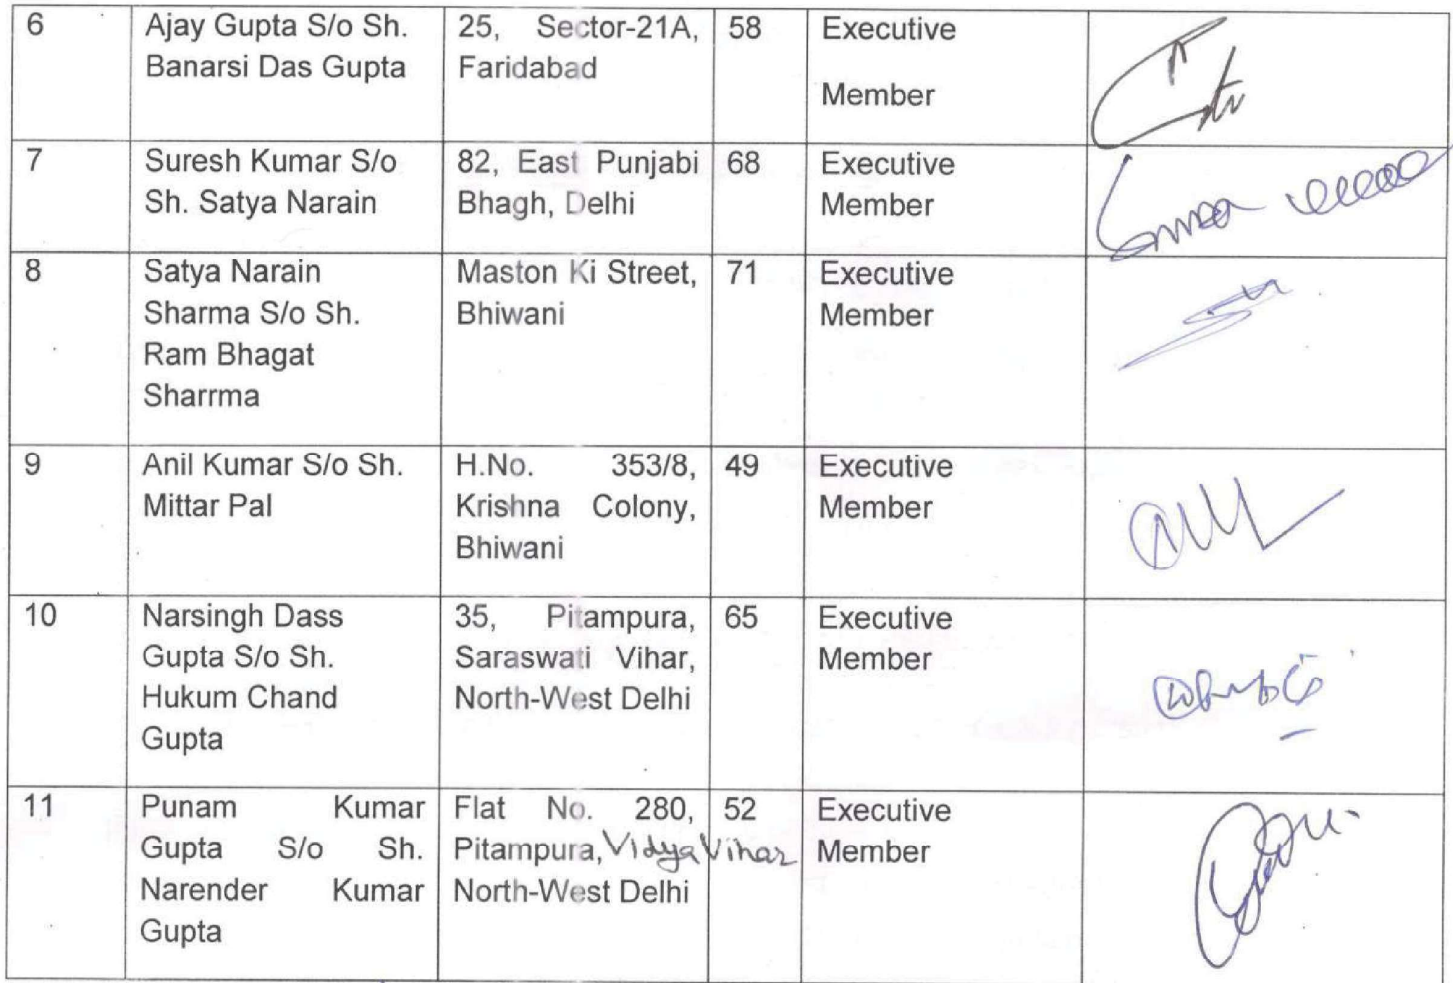 6
Ajay Gupta S/o Sh.
Banarsi Das Gupta
25, Sector-21A,
Faridabad
58
Executive
Member
7
Suresh Kumar S/o
Sh. Satya Narain
82, East Punjabi
Bhagh, Delhi
68
Executive
Member
8
Satya Narain
Sharma S/o Sh.
Ram Bhagat
Sharrma
Maston Ki Street,
Bhiwani
71
Executive
Member
9
Anil Kumar S/o Sh.
Mittar Pal
H.No. 353/8,
Krishna Colony,
Bhiwani
49
Executive
Member
10
Narsingh Dass
Gupta S/o Sh.
Hukum Chand
Gupta
35, Pitampura,
Saraswati Vihar,
North-West Delhi
65
Executive
Member
11
Punam Kumar
Gupta S/o Sh.
Narender Kumar
Gupta
Flat No. 280,
Pitampura, Vidya Vihar
North-West Delhi
52
Executive
Member